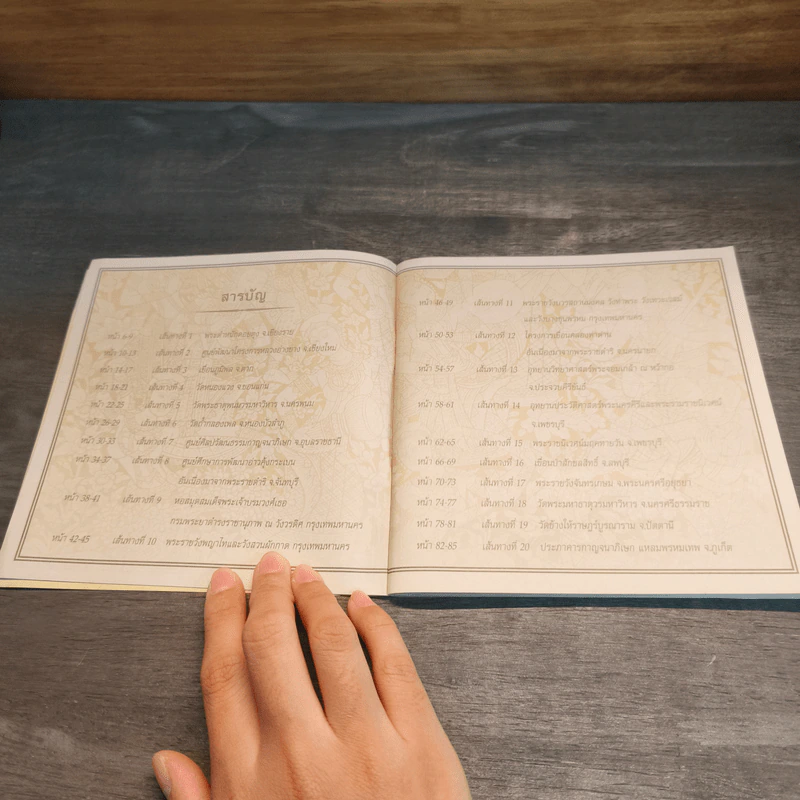 สารบัญ
หน้า 6-9 เส้นทางที่ 1 พระตำหนักดอยตุง จ.เชียงราย
หน้า 10-13 เส้นทางที่ 2 ศูนย์พัฒนาโครงการหลวงอ่างขาง จ.เชียงใหม่
หน้า 14-17 เส้นทางที่ 3 เขื่อนภูมิพล จ.ตาก
หน้า 18-21 เส้นทางที่ 4 วัดหนองแวง จ.ขอนแก่น
หน้า 22-25 เส้นทางที่ 5 วัดพระธาตุพนมวรมหาวิหาร จ.นครพนม
หน้า 26-29 เส้นทางที่ 6 วัดถ้ำกลองเพล จ.หนองบัวลำภู
หน้า 30-33 เส้นทางที่ 7 ศูนย์ศิลปวัฒนธรรมกาญจนาภิเษก จ.อุบลราชธานี
หน้า 34-37 เส้นทางที่ 8 ศูนย์ศึกษาการพัฒนาอ่าวคุ้งกระเบน
อันเนื่องมาจากพระราชดำริ จ.จันทบุรี
หน้า 38-41 เส้นทางที่ 9 หอสมุดสมเด็จพระเจ้าบรมวงศ์เธอ
กรมพระยาดำรงราชานุภาพ ณ วังวรดิศ กรุงเทพมหานคร
หน้า 42-45 เส้นทางที่ 10 พระราชวังพญาไทและวังสวนผักกาด กรุงเทพมหานคร
หน้า 46-49 เส้นทางที่ 11 พระราชวังบวรสถานมงคล วังท่าพระ
และวังบางขุนพรหม กรุงเทพมหานคร
หน้า 50-53 เส้นทางที่ 12 โครงการเขื่อนคลองท่าด่าน
อันเนื่องมาจากพระราชดำริ จ.นครนายก
หน้า 54-57 เส้นทางที่ 13 อุทยานวิทยาศาสตร์พระจอมเกล้า ณ หว้ากอ
จ.ประจวบคีรีขันธ์
หน้า 58-61 เส้นทางที่ 14 อุทยานประวัติศาสตร์พระนครคีรีและพระรามราชนิเวศน์
จ.เพชรบุรี
หน้า 62-65 เส้นทางที่ 15 พระราชนิเวศน์มฤคทายวัน จ.เพชรบุรี
หน้า 66-69 เส้นทางที่ 16 เขื่อนป่าสักชลสิทธิ์ จ.ลพบุรี
หน้า 70-73 เส้นทางที่ 17 พระราชวังจันทรเกษม จ.พระนครศรีอยุธยา
หน้า 74-77 เส้นทางที่ 18 วัดพระมหาธาตุวรมหาวิหาร จ.นครศรีธรรมราช
หน้า 78-81 เส้นทางที่ 19 วัดช้างให้ราษฎร์บูรณาราม จ.ปัตตานี
หน้า 82-85 เส้นทางที่ 20 ประภาคารกาญจนาภิเษก แหลมพรหมเทพ จ.ภูเก็ต